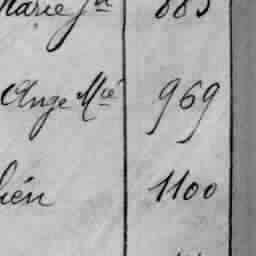 Marie Jn 885
Ange Mié 969
lién 1100